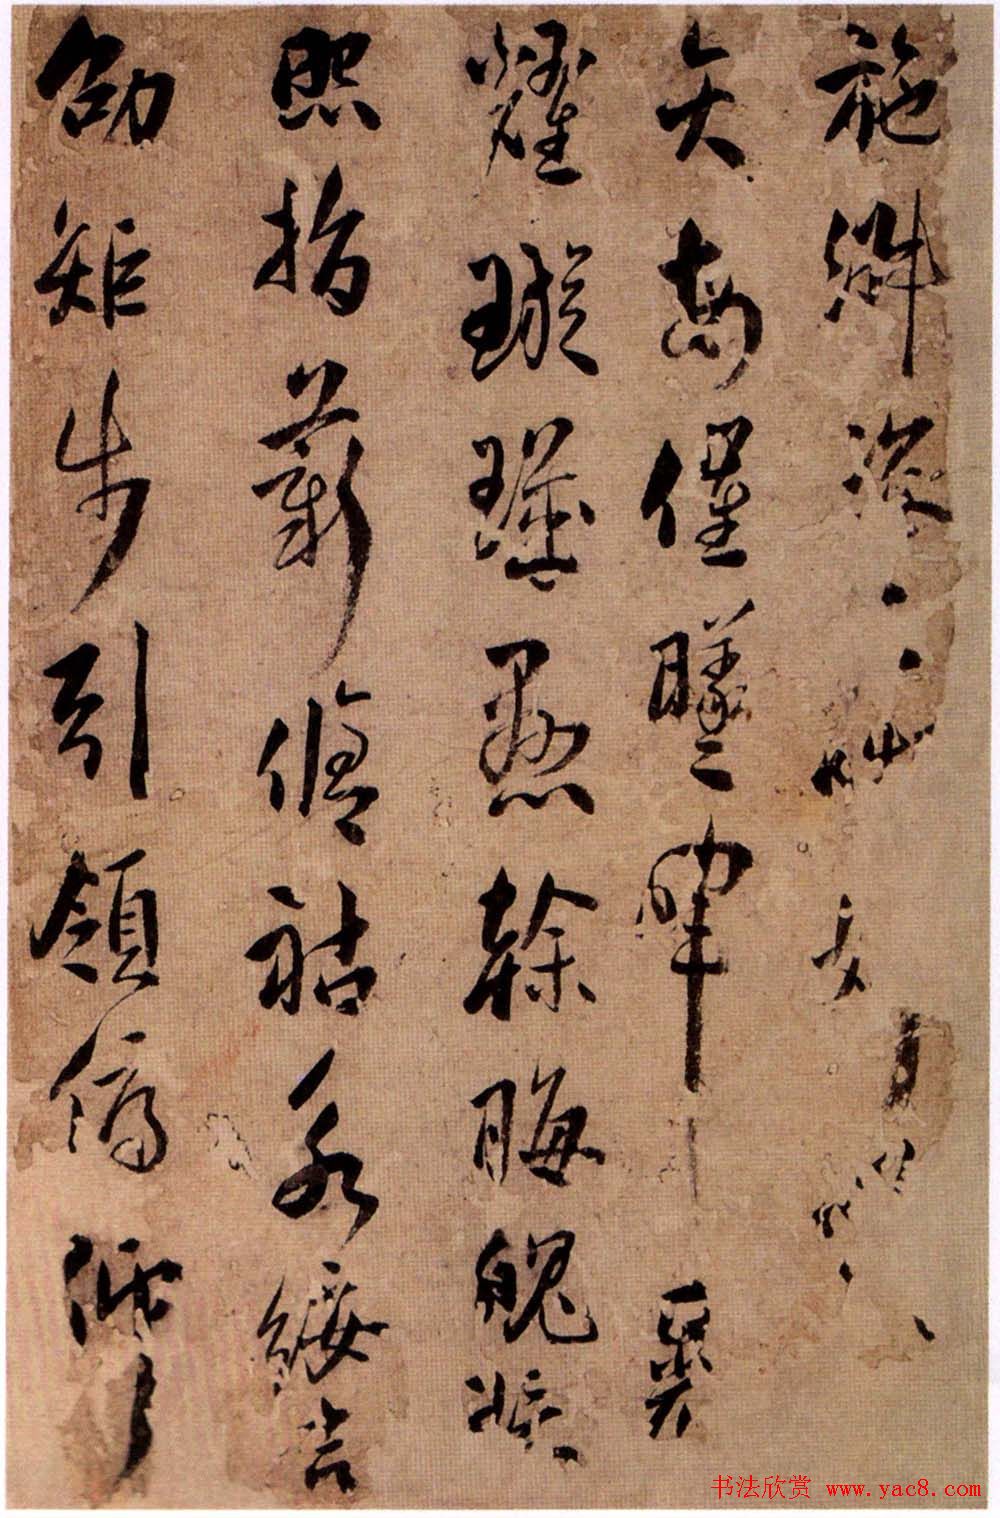 施淑姿
矢每催曦暉
耀璇璣懸斡晦魄環
照指薪脩祜永綏吉
劭矩步引領俯仰
书法欣赏 www.yac8.com